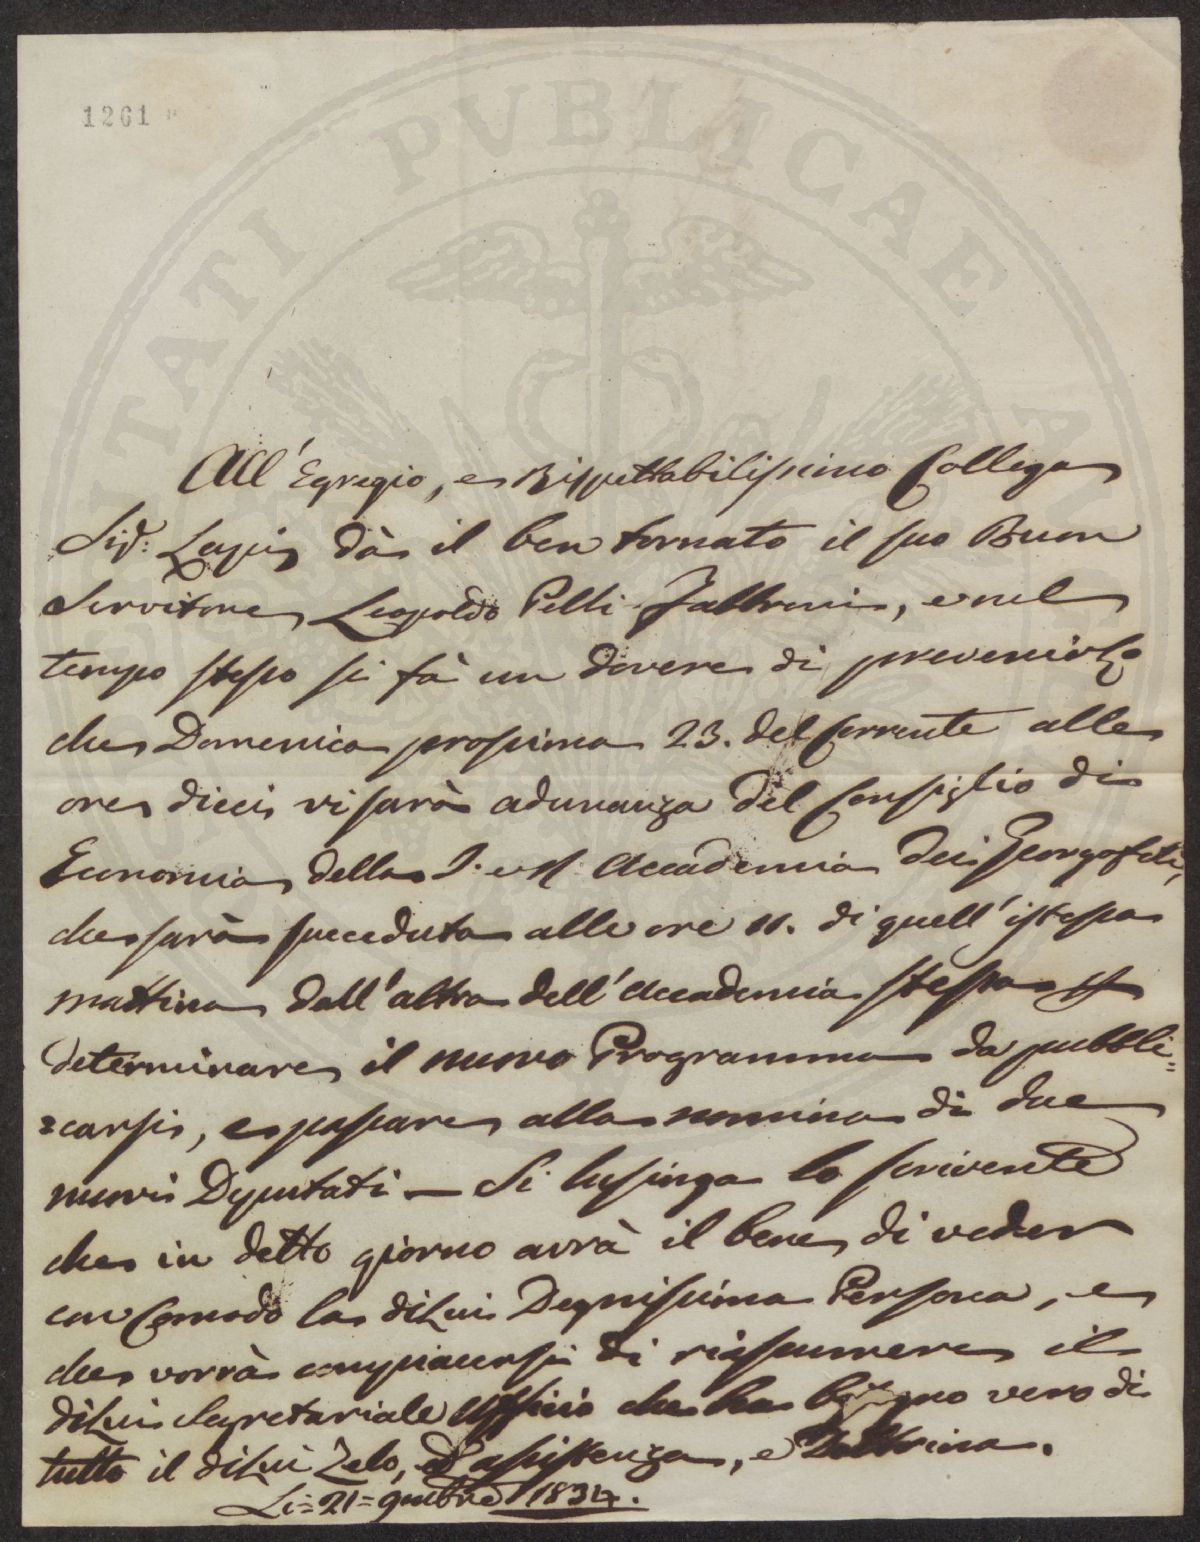 1261
PVBLICAE
All' Egregio, e Rispettabilissimo Collega
Sig.: dà il ben tornato il suo Buon
Servitore Leopoldo Pelli Fabbroni, e nel
tempo stesso si fà un dovere di prevenirlo
che Domenica prossima 23. del Corrente alle
ore dieci vi sarà adunanza del Consiglio di
Economia della I. e R. Accademia dei Georgofili,
che sarà succeduta alle ore 11. di quell' istessa
mattina dall' altra dell' Accademia stessa
determinare il nuovo Programma da pubbli=
=carsi, e passare alla nomina di due
nuovi Deputati — Si lusinga lo scrivente
che in detto giorno avrà il bene di veder
con Comodo la di Lui Degnissima Persona, e
che vorrà compiacersi di riassumere il
di Lui Segretariale Uffizio che ha bisogno vero di
tutto il di Lui Zelo, d'assistenza, e Dottrina.
Li = 21 = 9mbre 1834.